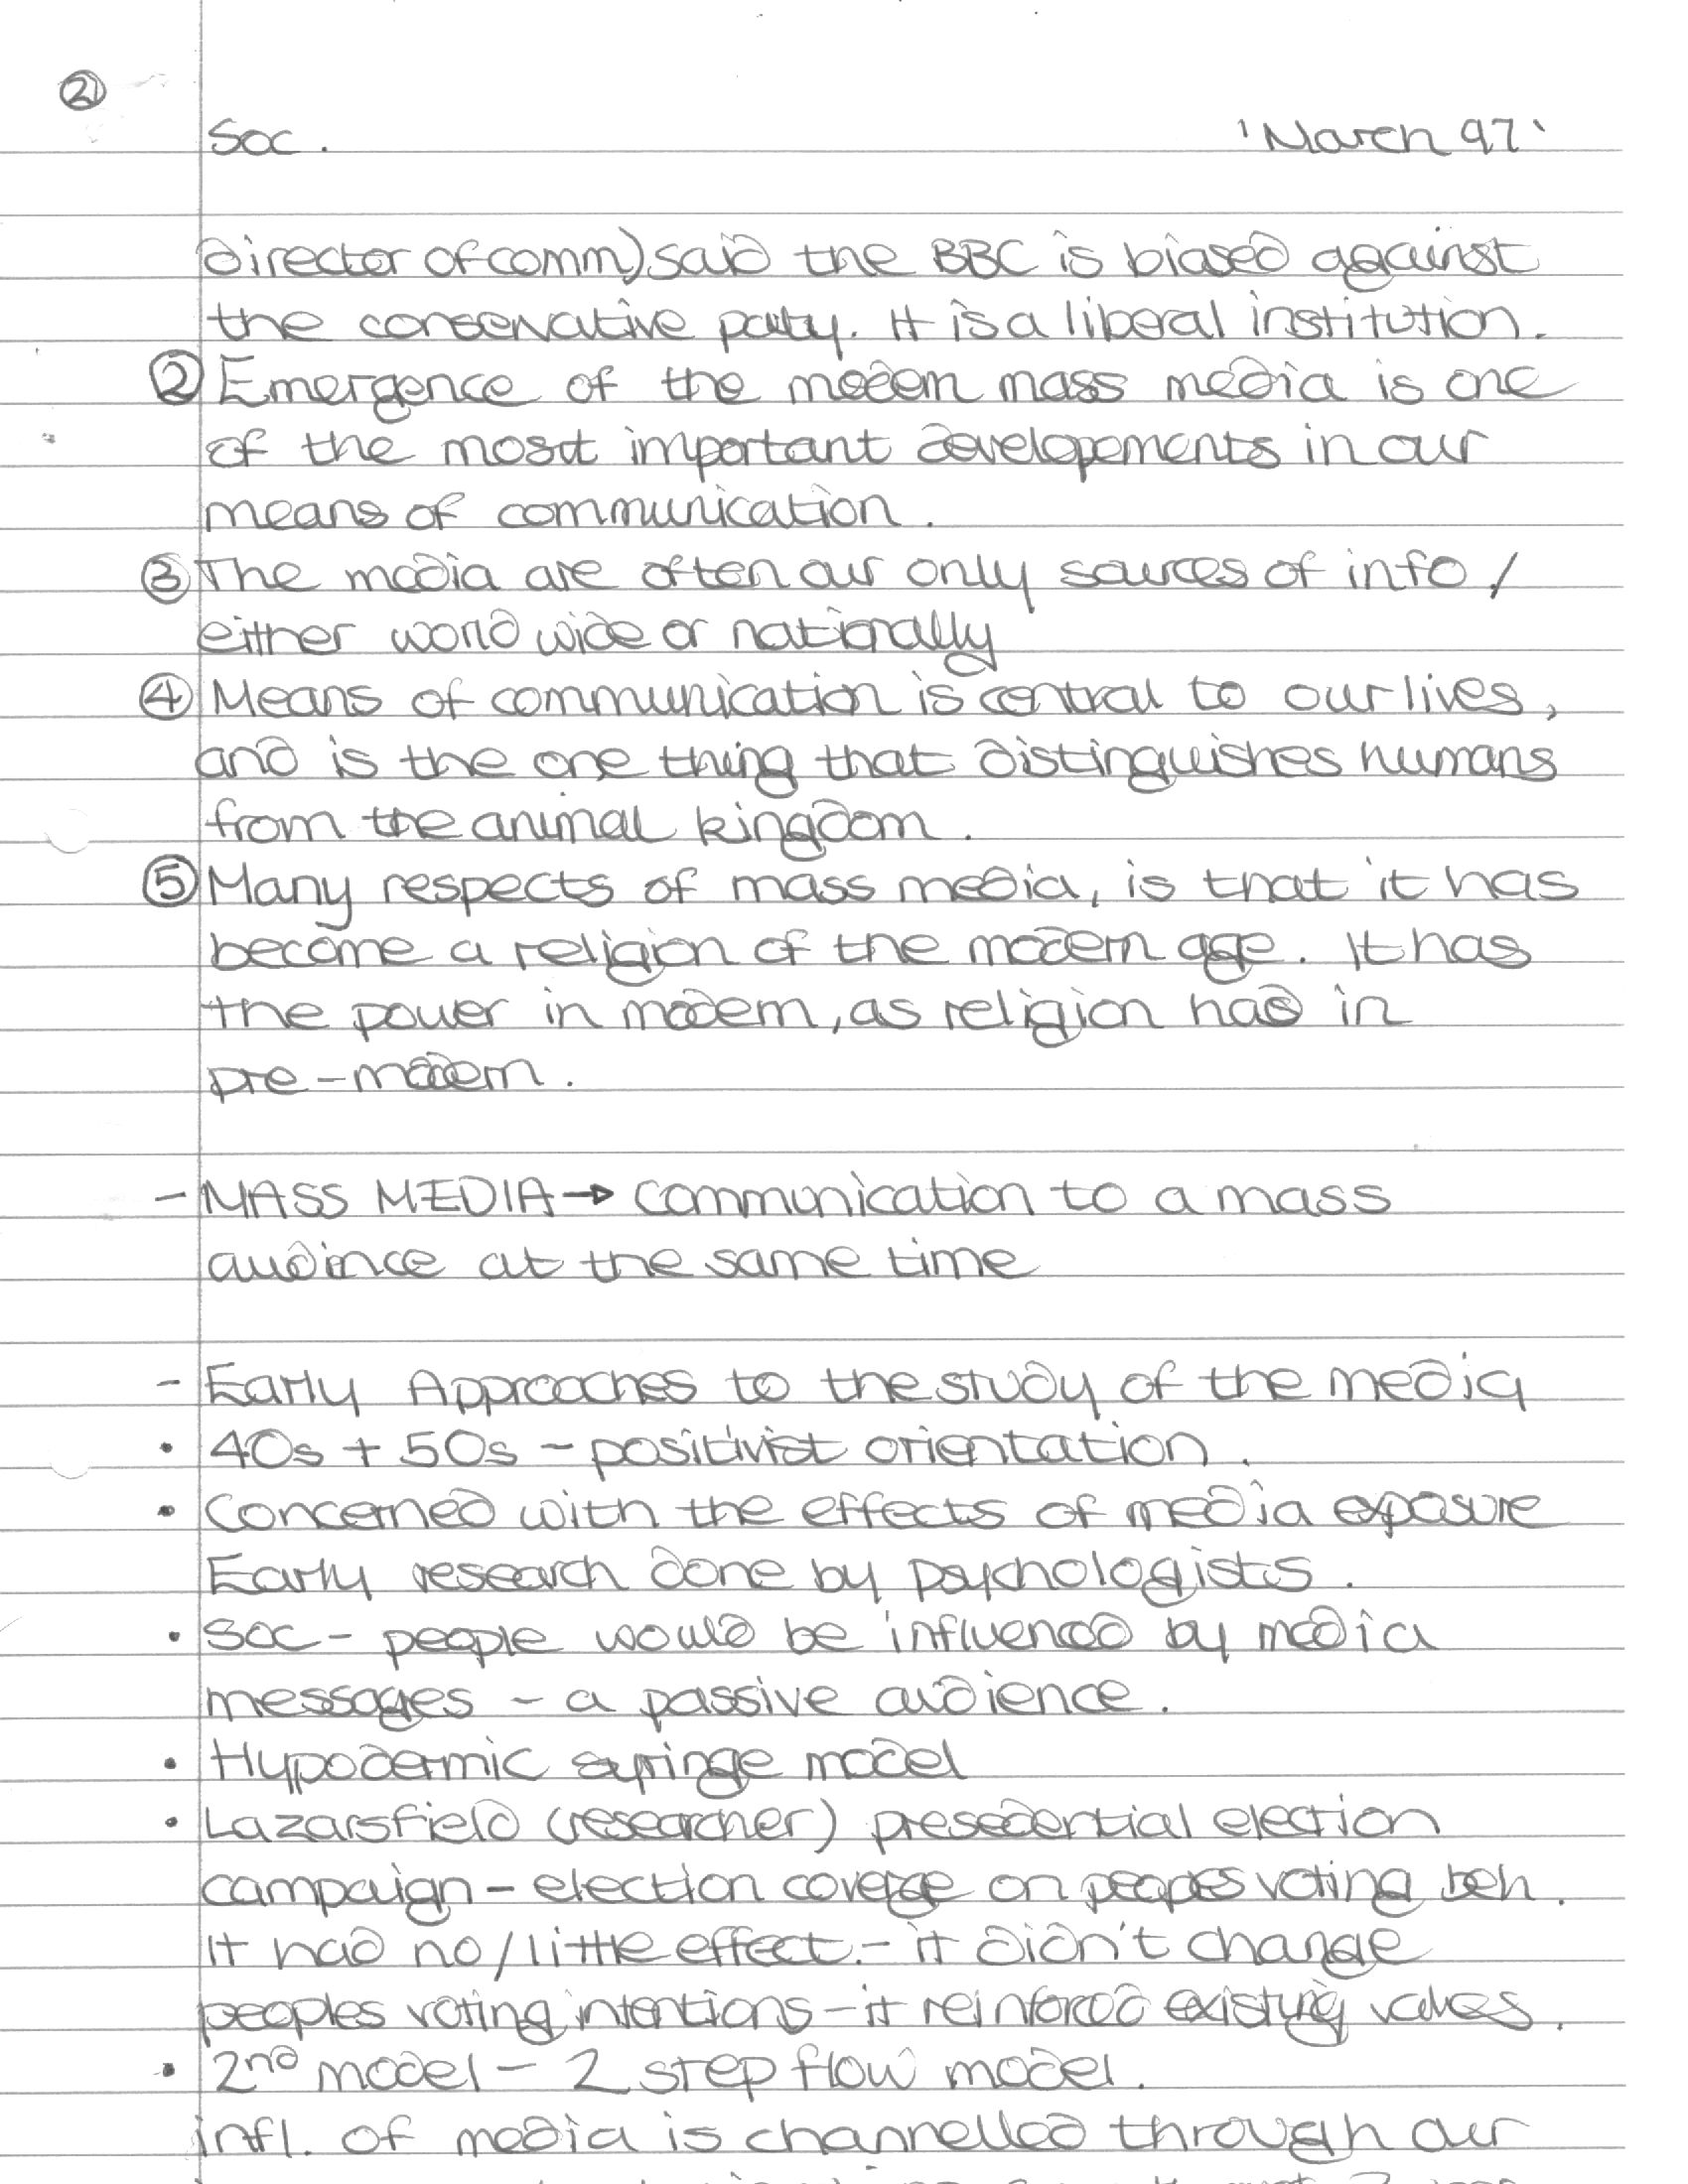 ②
Soc. 'March 97'
director of comm) said the BBC is biased against
the conservative party. It is a liberal institution.
② Emergence of the modern mass media is one
of the most important developements in our
means of communication.
③ The media are often our only sources of info /
either world wide or nationally
④ Means of communication is central to our lives,
and is the one thing that distinguishes humans
from the animal kingdom.
⑤ Many respects of mass media, is that it has
become a religion of the modern age. It has
the power in modern, as religion has in
pre-modern.
- MASS MEDIA → communication to a mass
audince at the same time
- Early Approaches to the study of the media
• 40s + 50s - positivist orientation.
• Concerned with the effects of media exposure
Early research done by psychologists.
• soc - people would be influenced by media
messages - a passive audience.
• Hypodermic syringe model
• Lazarsfield (researcher) presedential election
campaign - election coverge on peoples voting beh.
It had no/little effect. - it didn't change
peoples voting intentions - it reinforced existing values.
• 2nd model - 2 step flow model.
infl. of media is channelled through our